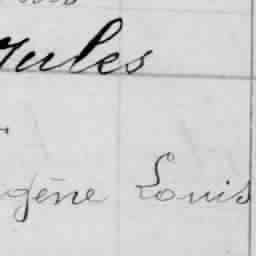 Jules
gène Louis